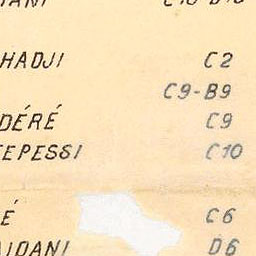 HADJI C2
C9-B9
DÉRÉ C9
TEPESSI C10
É C6
AIDANI D6